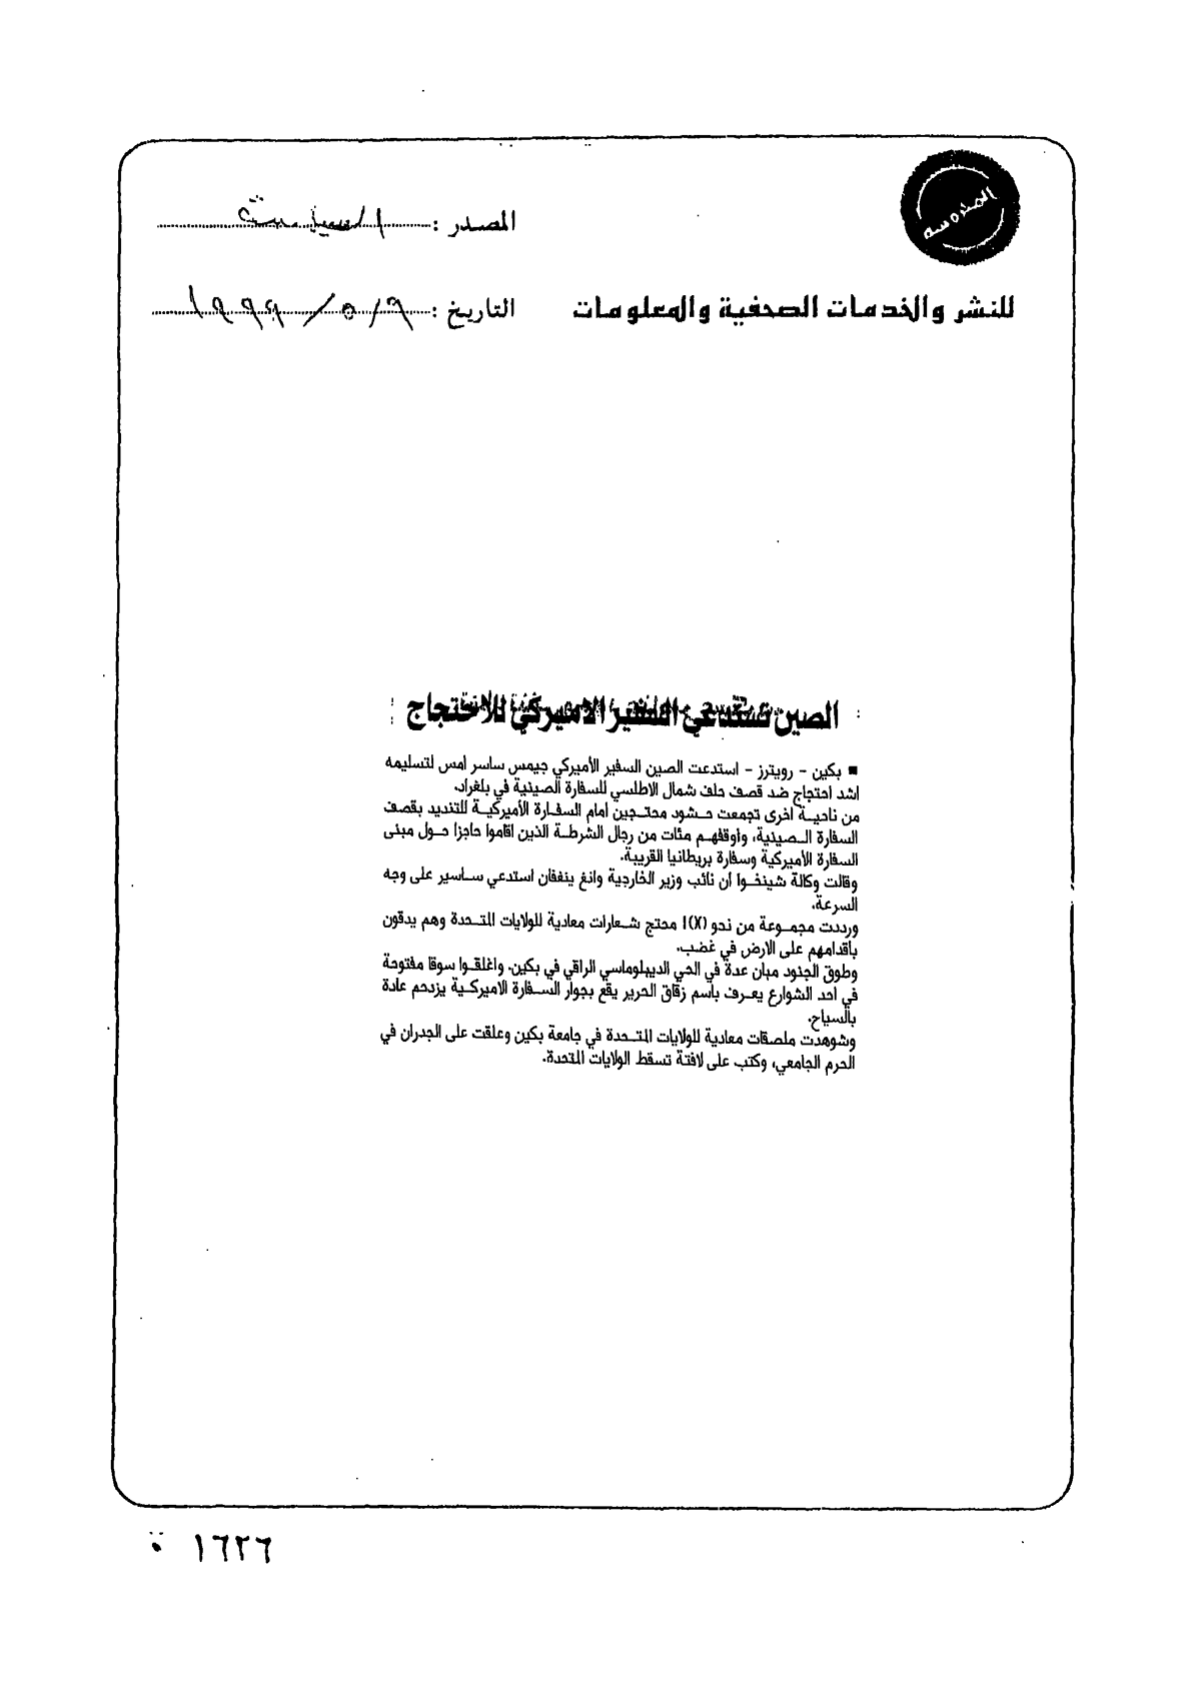 المحروسة
المصدر : السياسة
للنشر والخدمات الصحفية والمعلومات
التاريخ : ٩ / ٥ / ١٩٩٩
الصين تستدعي السفير الاميركي للاحتجاج
■ بكين - رويترز - استدعت الصين السفير الأميركي جيمس ساسر امس لتسليمه
اشد احتجاج ضد قصف حلف شمال الاطلسي للسفارة الصينية في بلغراد.
من ناحية اخرى تجمعت حشود محتجين امام السفارة الأميركية للتنديد بقصف
السفارة الصينية، وأوقفهم مئات من رجال الشرطة الذين اقاموا حاجزا حول مبنى
السفارة الأميركية وسفارة بريطانيا القريبة.
وقالت وكالة شينخوا أن نائب وزير الخارجية وانغ ينغفان استدعي ساسير على وجه
السرعة.
ورددت مجموعة من نحو محتج شعارات معادية للولايات المتحدة وهم يدقون
باقدامهم على الارض في غضب.
وطوق الجنود مبان عدة في الحي الديبلوماسي الراقي في بكين. واغلقوا سوقا مفتوحة
في احد الشوارع يعرف باسم زقاق الحرير يقع بجوار السفارة الاميركية يزدحم عادة
بالسياح.
وشوهدت ملصقات معادية للولايات المتحدة في جامعة بكين وعلقت على الجدران في
الحرم الجامعي، وكتب على لافتة تسقط الولايات المتحدة.
١٦٢٦